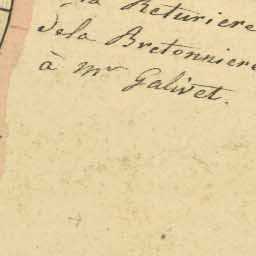 la Returiere
de la Bretonniere
à mr Galivet.